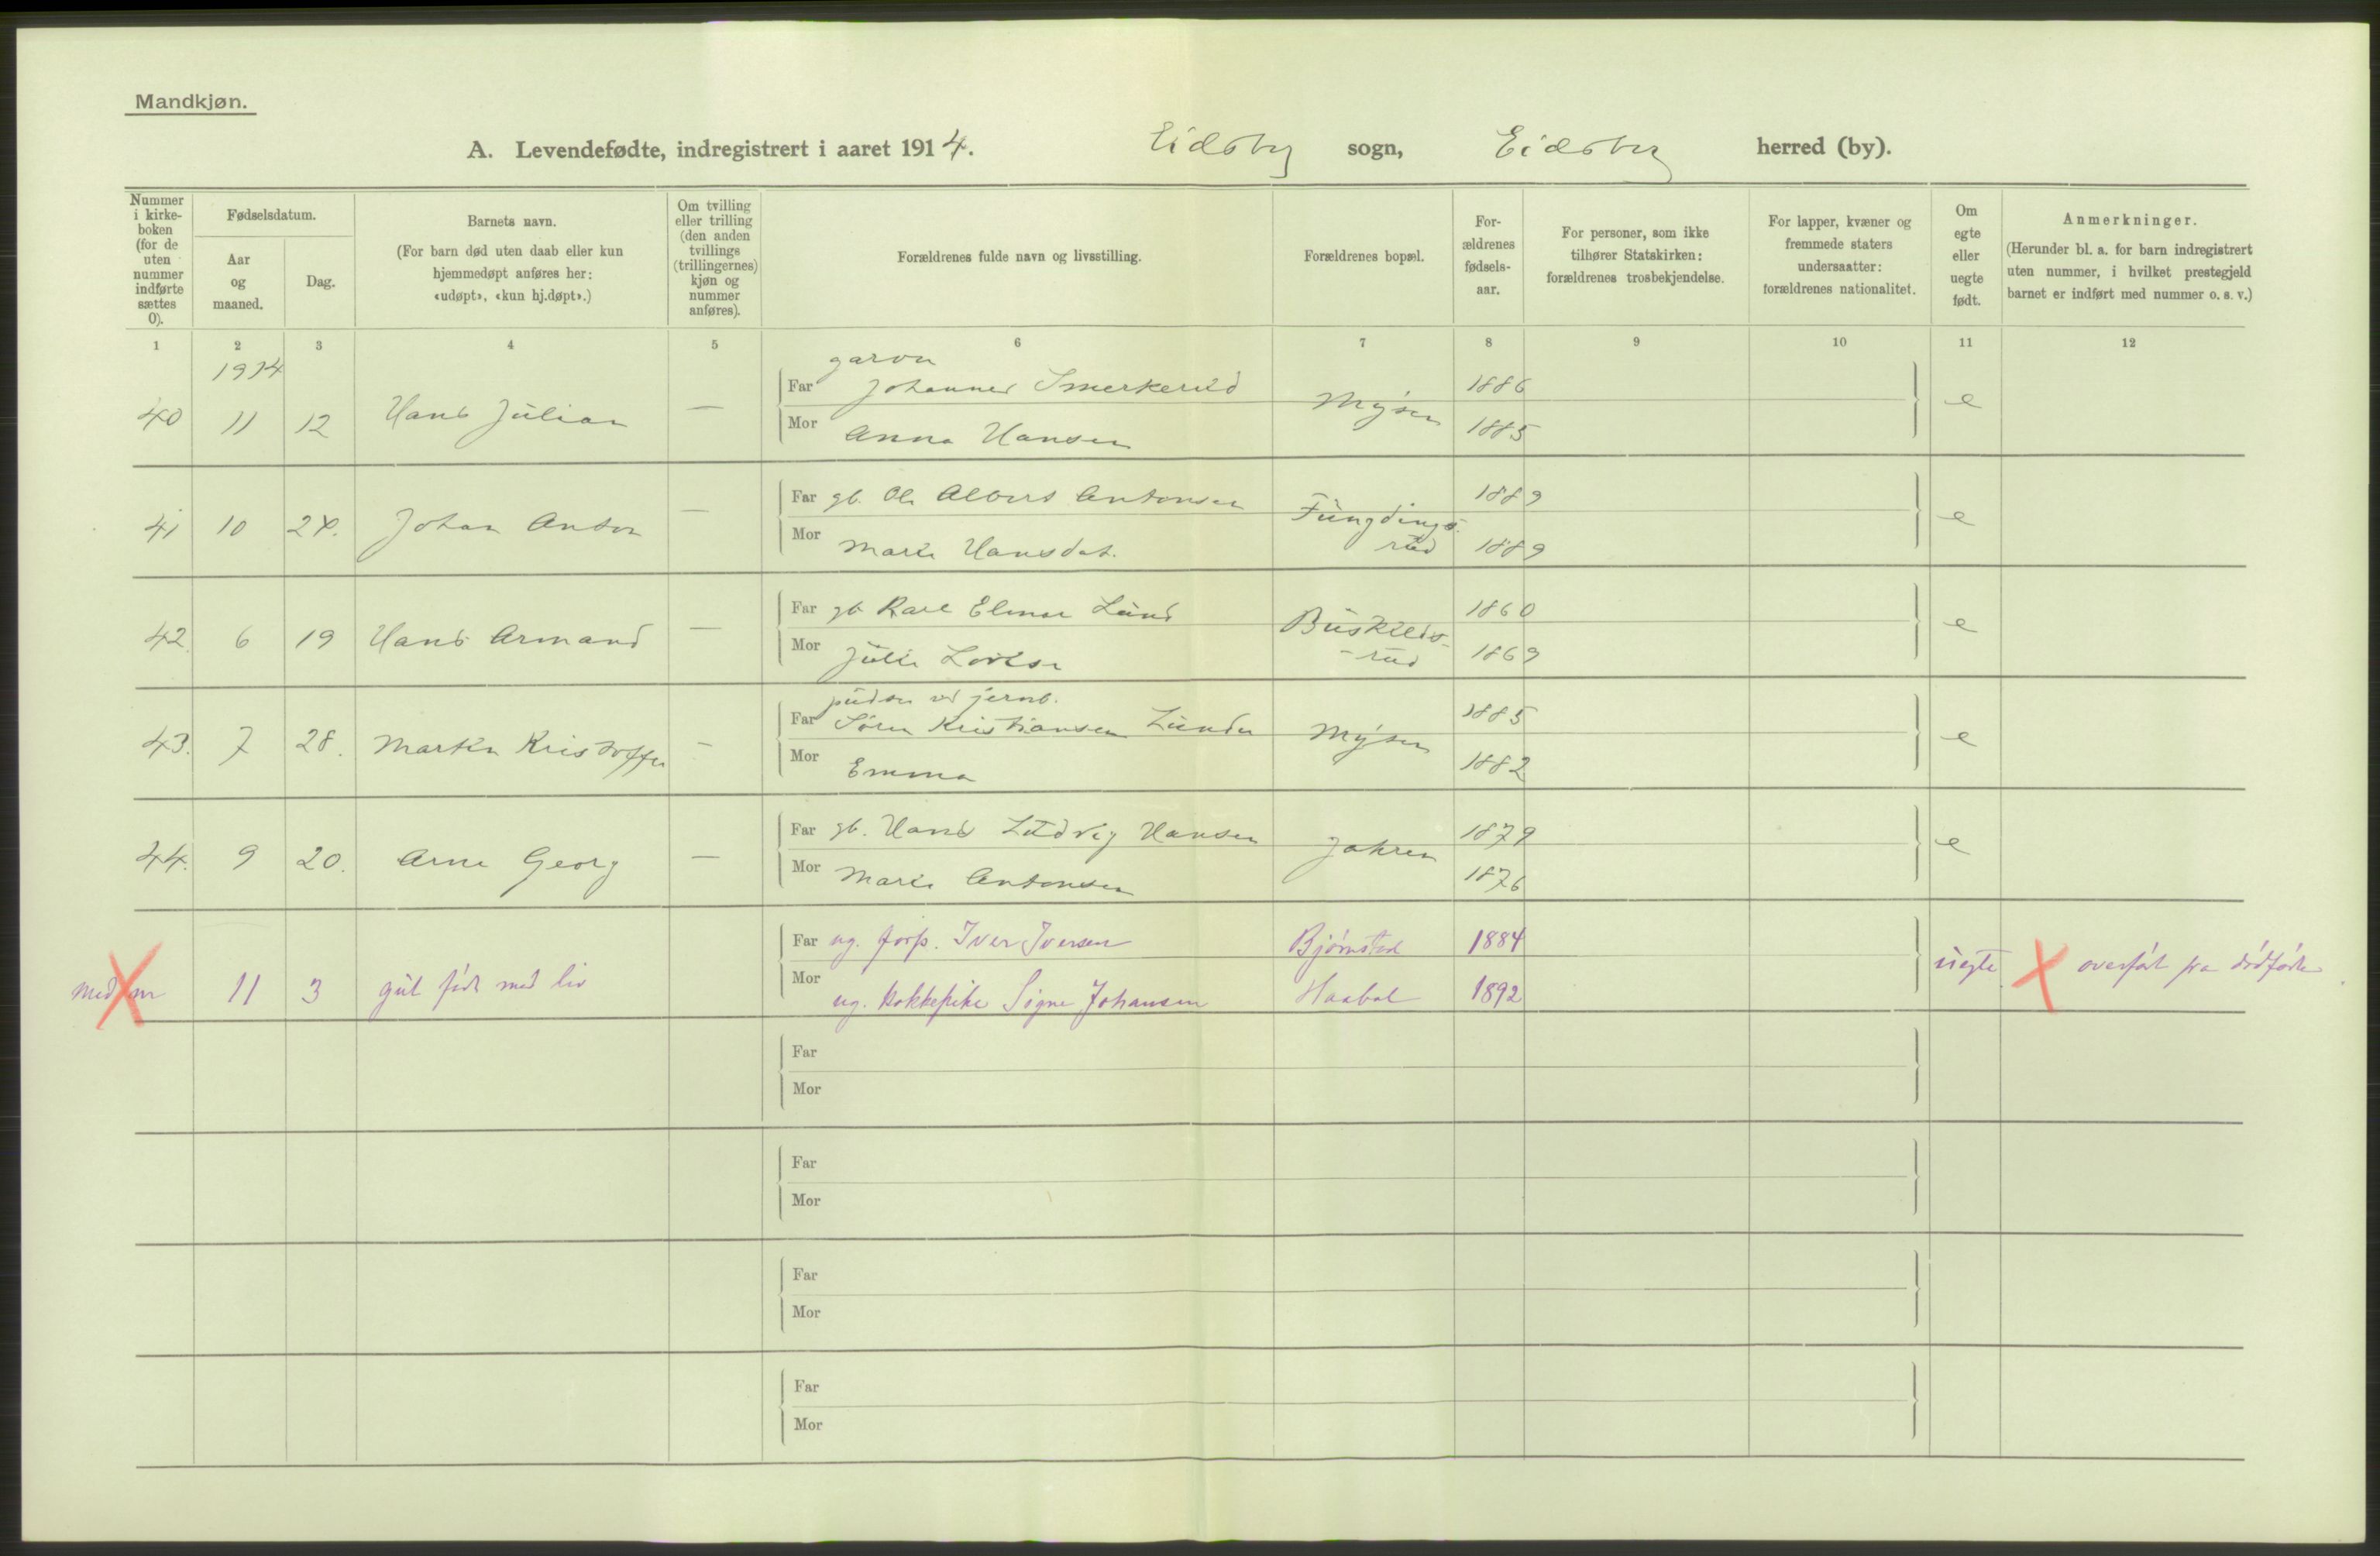 Mandkjøn.
A. Levendefødte, indregistrert i aaret 1914. Eidsberg sogn, Eidsberg herred (by).
Nummer i kirke-boken (for de uten nummer indførte sættes 0).
Fødselsdatum.
Aar og maaned.
Dag.
Barnets navn.
(For barn død uten daab eller kun hjemmedøpt anføres her: «udøpt», «kun hj.døpt».)
Om tvilling eller trilling (den anden tvillings (trillingernes) kjøn og nummer anføres).
Forældrenes fulde navn og livsstilling.
Forældrenes bopæl.
For-ældrenes fødsels-aar.
For personer, som ikke tilhører Statskirken: forældrenes trosbekjendelse.
For lapper, kvæner og fremmede staters undersaatter: forældrenes nationalitet.
Om egte eller uegte født.
Anmerkninger.
(Herunder bl. a. for barn indregistrert uten nummer, i hvilket prestegjeld barnet er indført med nummer o. s. v.)
1 2 3 4 5 6 7 8 9 10 11 12
1914
garver
Far Johannes Smerkerud 1886
40 11 12 Hans Julian — Mysen e
Mor Anna Hansen 1885
Far gb. Ole Albert Antonsen 1889
41 10 24. Johan Anton — Fungdings-rud e
Mor Marie Hansdat. 1889
Far gb Karl Elmar Lund 1860
42 6 19 Hans Armand — Buskilds-rud e
Mor Julie Lovise 1869
pudser ved jernb.
Far Søren Kristiansen Lunder 1885
43. 7 28. Martin Kristoffer — Mysen e
Mor Emma 1882
Far gb. Hans Ludvig Hansen 1879
44. 9 20. Arne Georg — Jahren e
Mor Marie Antonsen 1876
Far ug. forp. Iver Iversen Bjørnstad 1884
med m 11 3 gut født med liv uegte overført fra dødfødte
Mor ug. kokkepike Signe Johansen Haabøl 1892
Far
Mor
Far
Mor
Far
Mor
Far
Mor